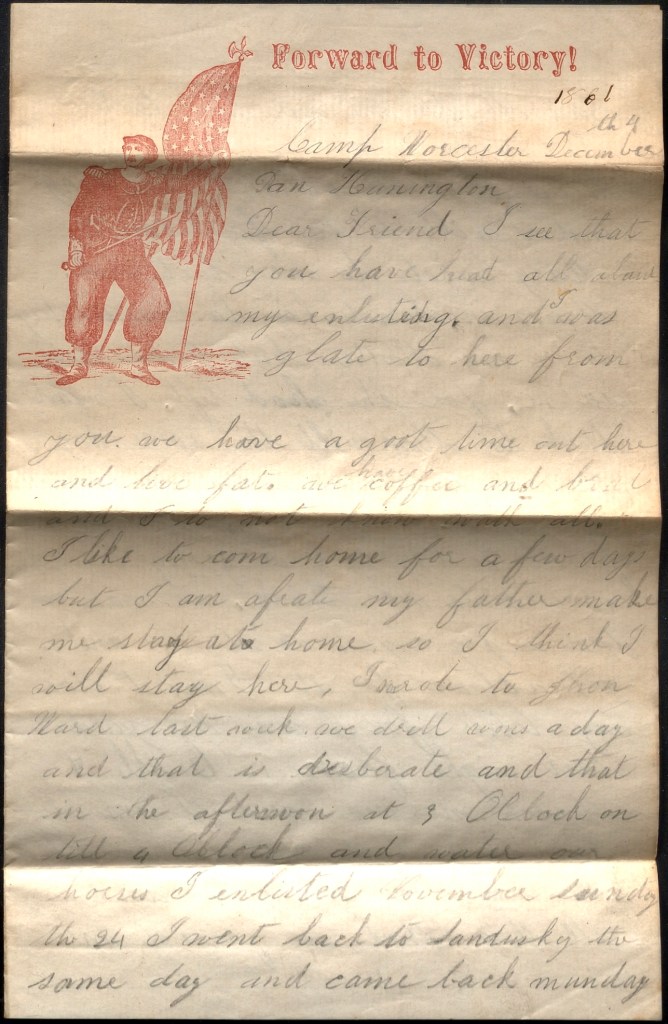 Forward to Victory!
1861
th 4
Camp Worcester December
Dan Hunington
Dear Friend I see that
you have heat all about
my enlisting. and I was
glate to here from
you. we have a goot time out here
and live fat. we have coffee and bread
and I do not know what all.
I like to com home for a few days
but I am afeate my father make
me stay at home. so I think I
will stay here, I wrote to
Ward last week. we drill wons a day
and that is desberate and that
in the afternoon at 3 OClock on
till 4 OClock and water our
horses I enlisted November sunday
th 24 I went back to Sandusky the
same day and came back munday